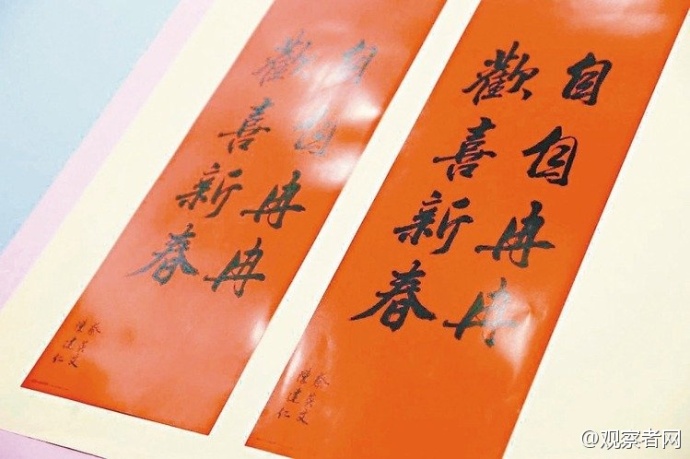 自自冉冉
歡喜新春
蔡英文
陳建仁
自自冉冉
歡喜新春
蔡英文
陳建仁
@观察者网